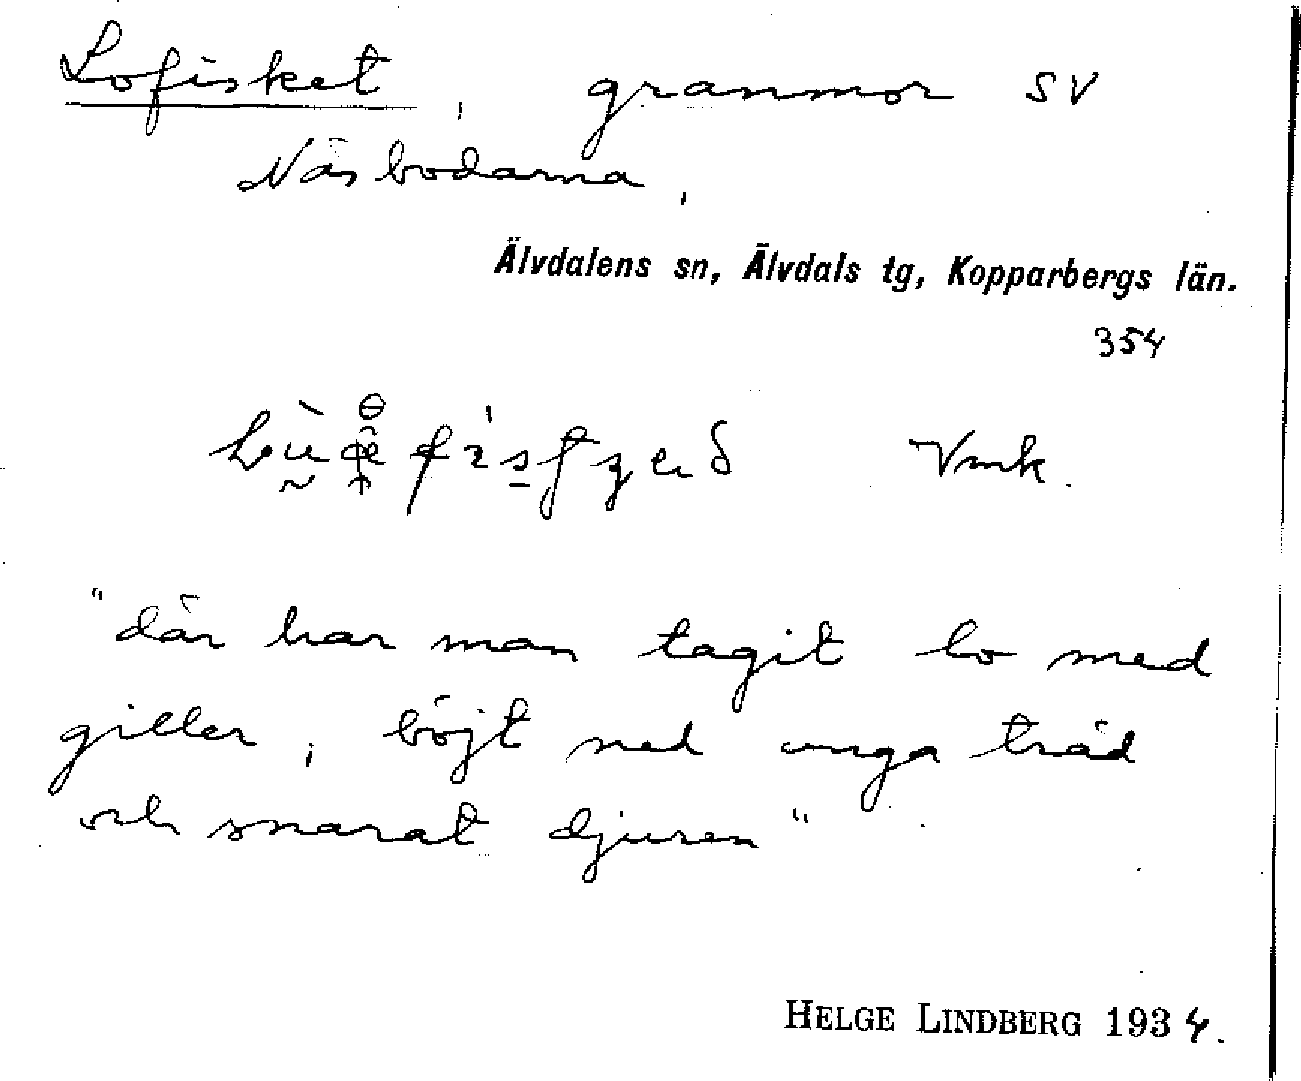 Lofisket, granmor SV
Näsbodarna,
Älvdalens sn, Älvdals tg, Kopparbergs län.
354
Vmk.
"där har man tagit lo med
giller, böjt ned unga träd
och snarat djuren"
HELGE LINDBERG 1934.